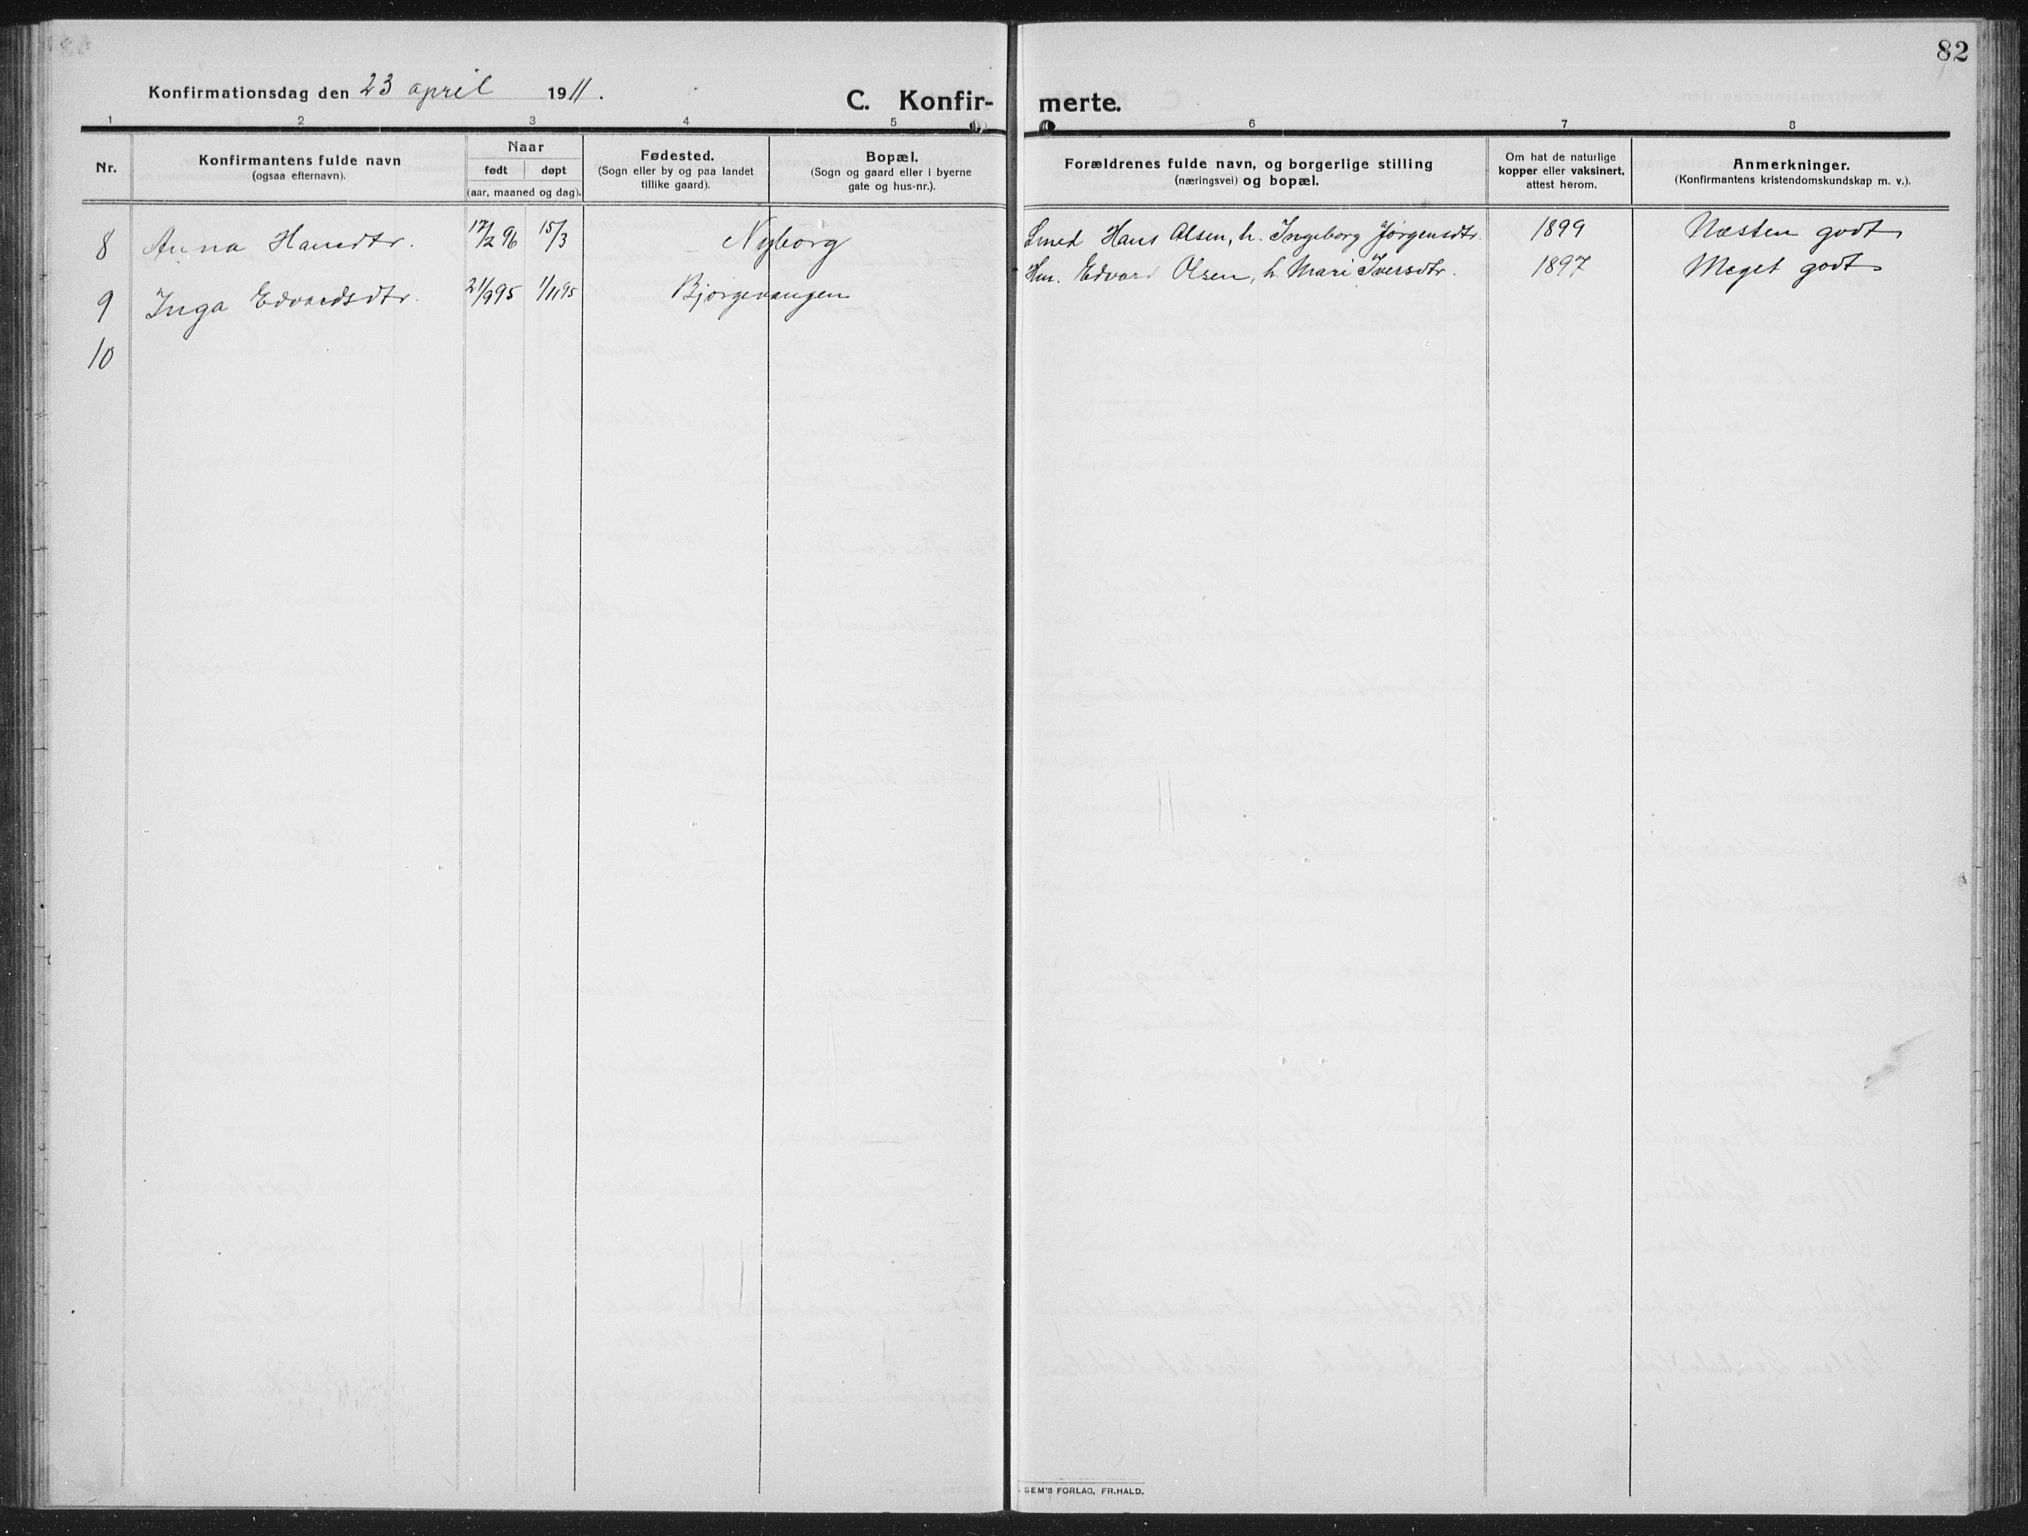 82
Konfirmationsdag den 23 april 1911.
C. Konfir- merte.
1 2 3 4 5 6 7 8
Nr.
Konfirmantens fulde navn
(ogsaa efternavn).
Naar
født døpt
(aar, maaned og dag).
Fødested.
(Sogn eller by og paa landet
tillike gaard).
Bopæl.
(Sogn og gaard eller i byerne
gate og hus-nr.).
Forældrenes fulde navn, og borgerlige stilling
(næringsvei) og bopæl.
Om hat de naturlige
kopper eller vaksinert,
attest herom.
Anmerkninger.
(Konfirmantens kristendomskundskap m. v.).
8 Anna Hansdtr. 17/2 96 15/3 Nyborg Smed Hans Olsen, h. Ingeborg Jørgensdtr. 1899 Næsten godt
9 Inga Edvardsdtr. 21/9 95 1/11 95 Bjørgevangen Hm. Edvard Olsen, h. Mari Iversdtr. 1897 Meget godt
10
SEM'S FORLAG, FR.HALD.